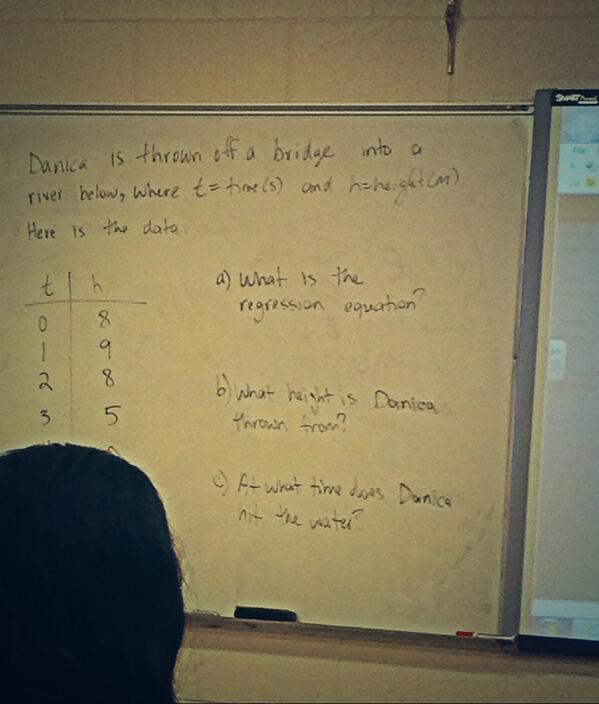 Danica is thrown off a bridge into a
river below, where t=time(s) and h=height(m)
Here is the data.
t h
0 8
1 9
2 8
3 5
a) What is the
regression equation?
b) What height is Danica
thrown from?
c) At what time does Danica
hit the water?
SMART